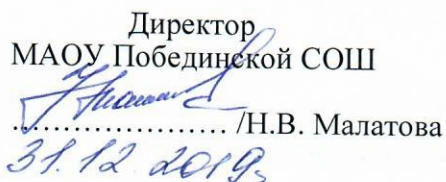 Директор
МАОУ Побединской СОШ
..................... /Н.В. Малатова
31.12.2019г